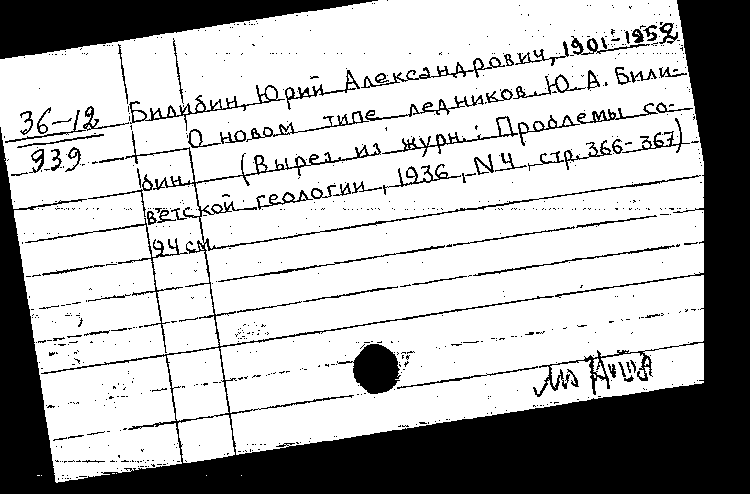 36-12
939
Билибин, Юрий Александрович, 1901-1952
О новом типе ледников. Ю. А. Били-
бин. (Вырез. из журн.: Проблемы со-
ветской геологии, 1936, N 4, стр. 366-367)
24 см.